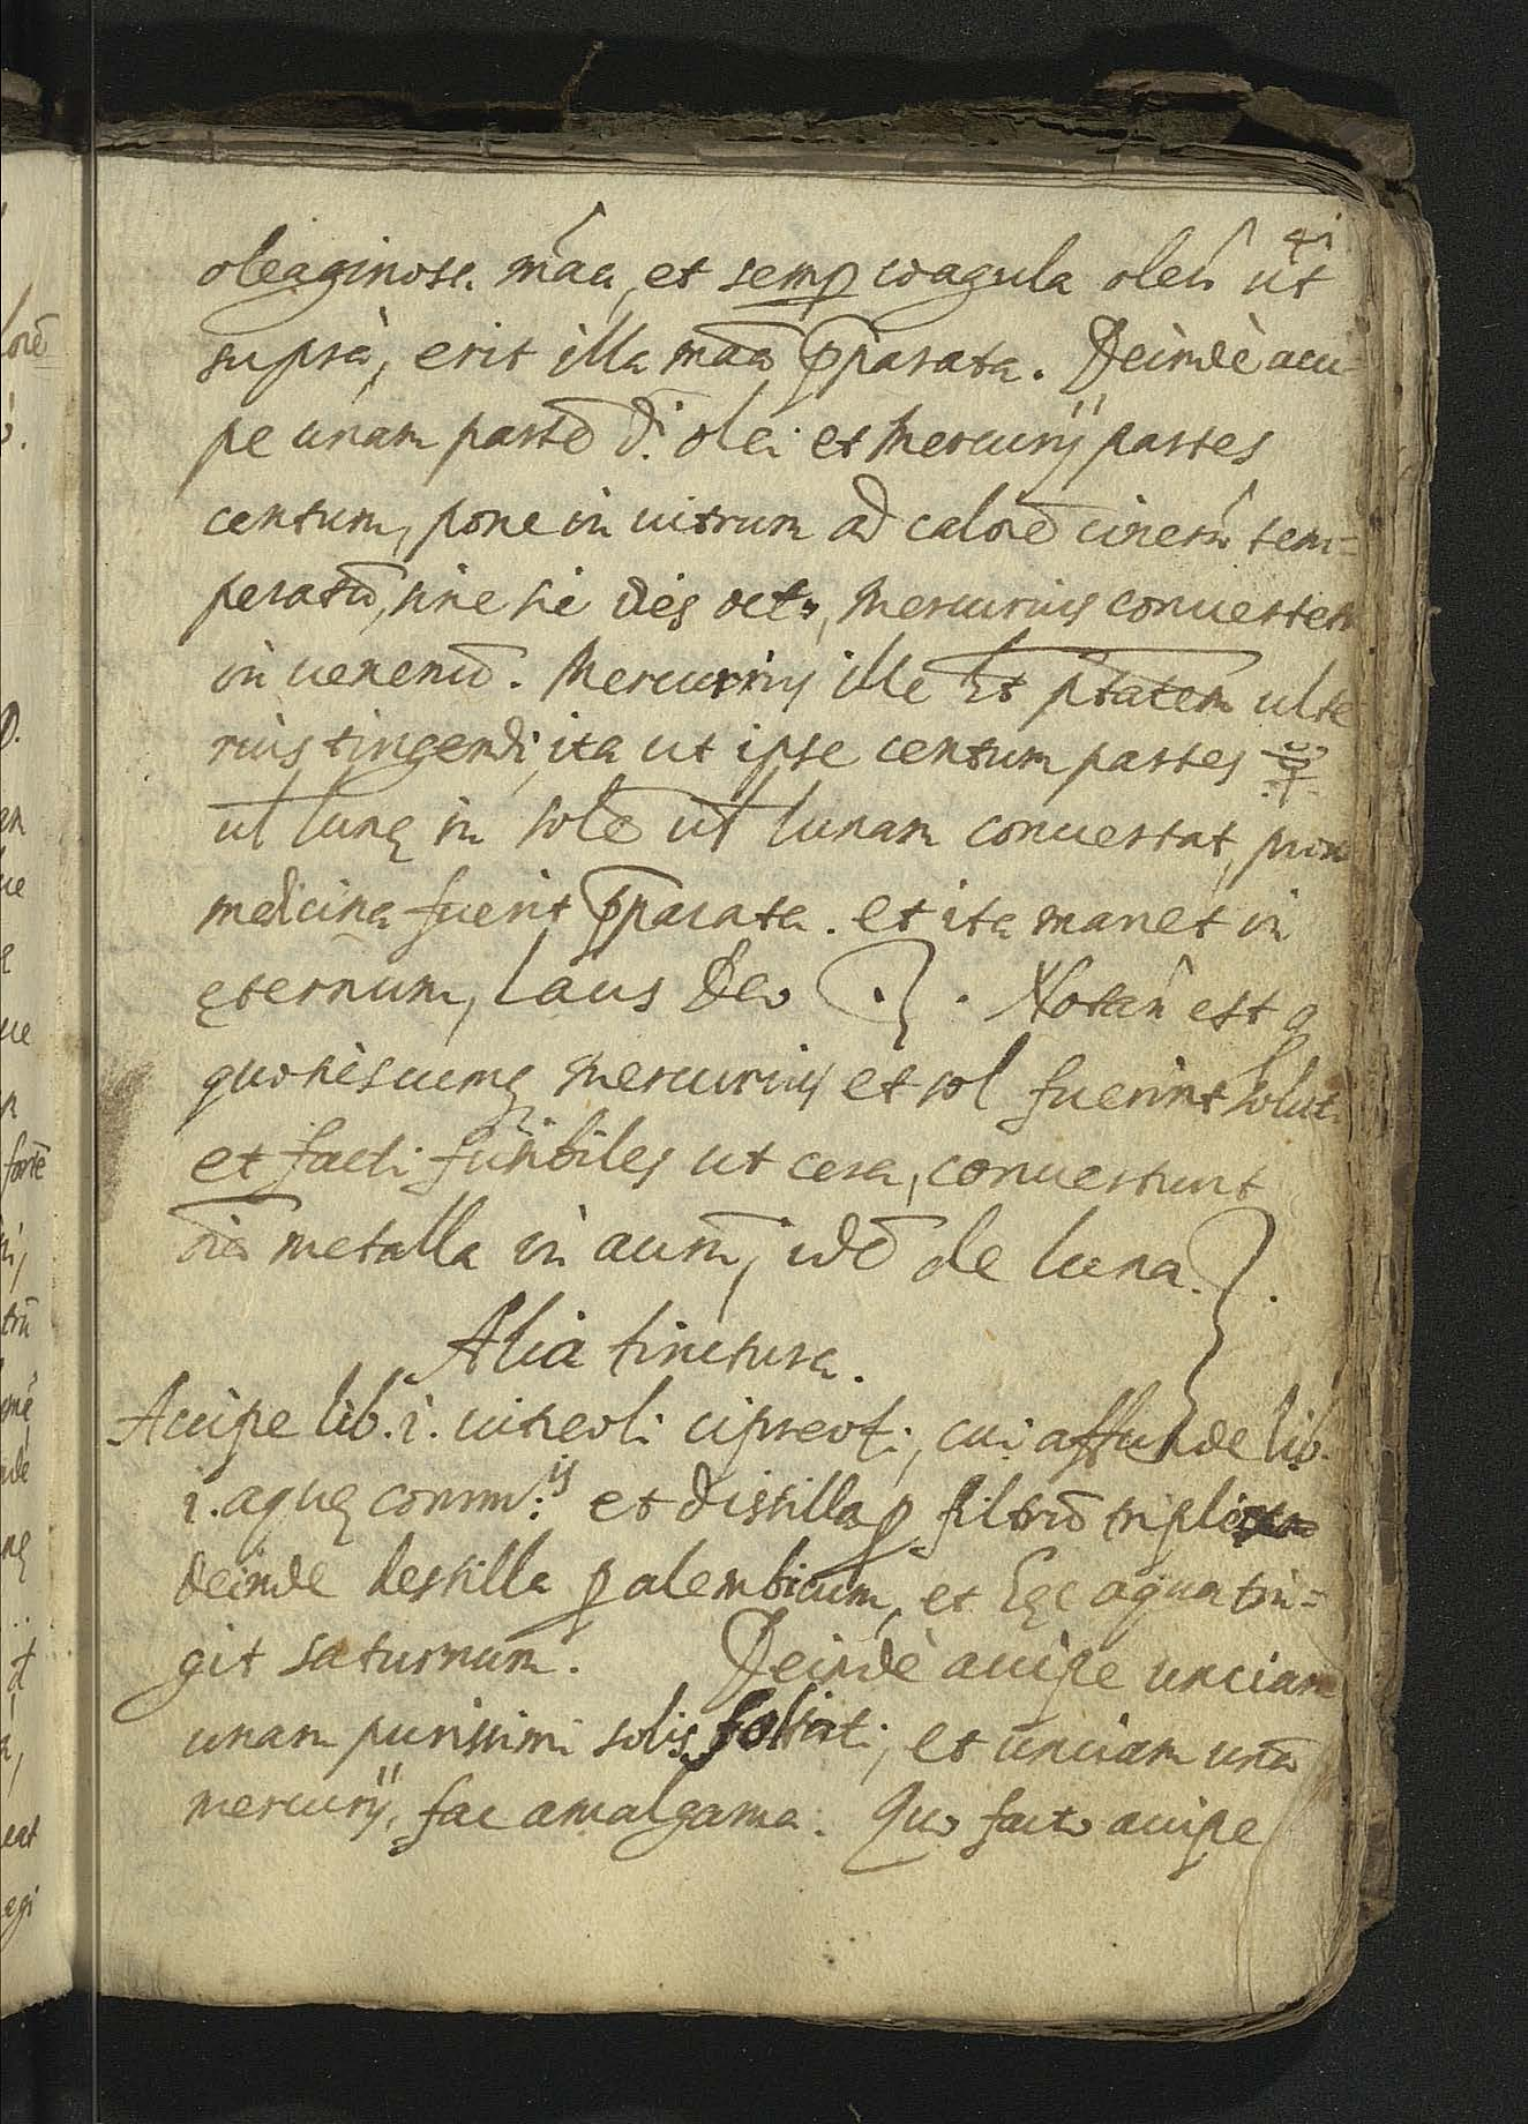 41
oleaginosa mãa, et semp coagula oleû ut
suprà, erit illa mãa p̃parata. Deindè acci-
pe unam partẽ d.ⁱ olei et Mercurij partes
centum, pone in uitrum ad calorẽ cinerû tem=
peratũ, sine sic dies octo, Mercurius conuertetr
in uenenũ. Mercurius ille ht ptãtem ulte
rius tingendi, ita ut ipse centum partes ☿
ul̃ lunę in solẽ ul̃ lunam conuertat, prout
medicina fuerit p̃parata. et ita manet in
ęternum, laus Deo. Notan̂ est q
quotiescumq Mercurius et sol fuerint solut.
et facti fusibiles ut cera, conuertunt
oĩa metalla in aurũ, idẽ de luna.
Alia tinctura.
Accipe lib. i. uitreoli cipreoti, cui affunde lib.
i. aquę comm:ⁱˢ et distilla p filtrũ
deinde destilla p alembicum, et hęc aqua tin=
git saturnum. Deindè accipe unciam
unam purissimi solis foliati, et unciam unã
mercurij, fac amalgama. Quo facto accipe